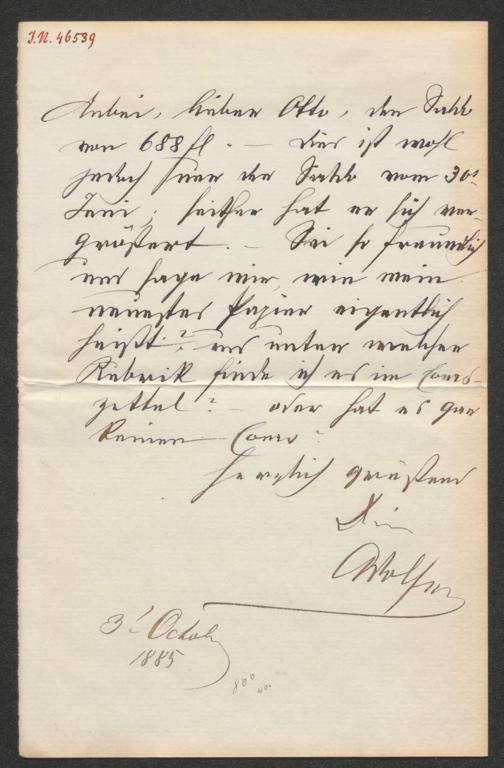 I.N. 46539
Anbei, lieber Otto, der Saldo
von 688 fl. — Dies ist wohl
jedoch nur der Saldo vom 30t
Juni; seither hat er sich ver-
größert. — Sei so freundlich
und sage mir, wie mein
neuestes Papier eigentlich
heißt?, und unter welcher
Rubrik finde ich es im Cours-
zettel? — oder hat es gar
keinen Cours?
Herzlich grüßend
Dein
3t October
1885
800
400